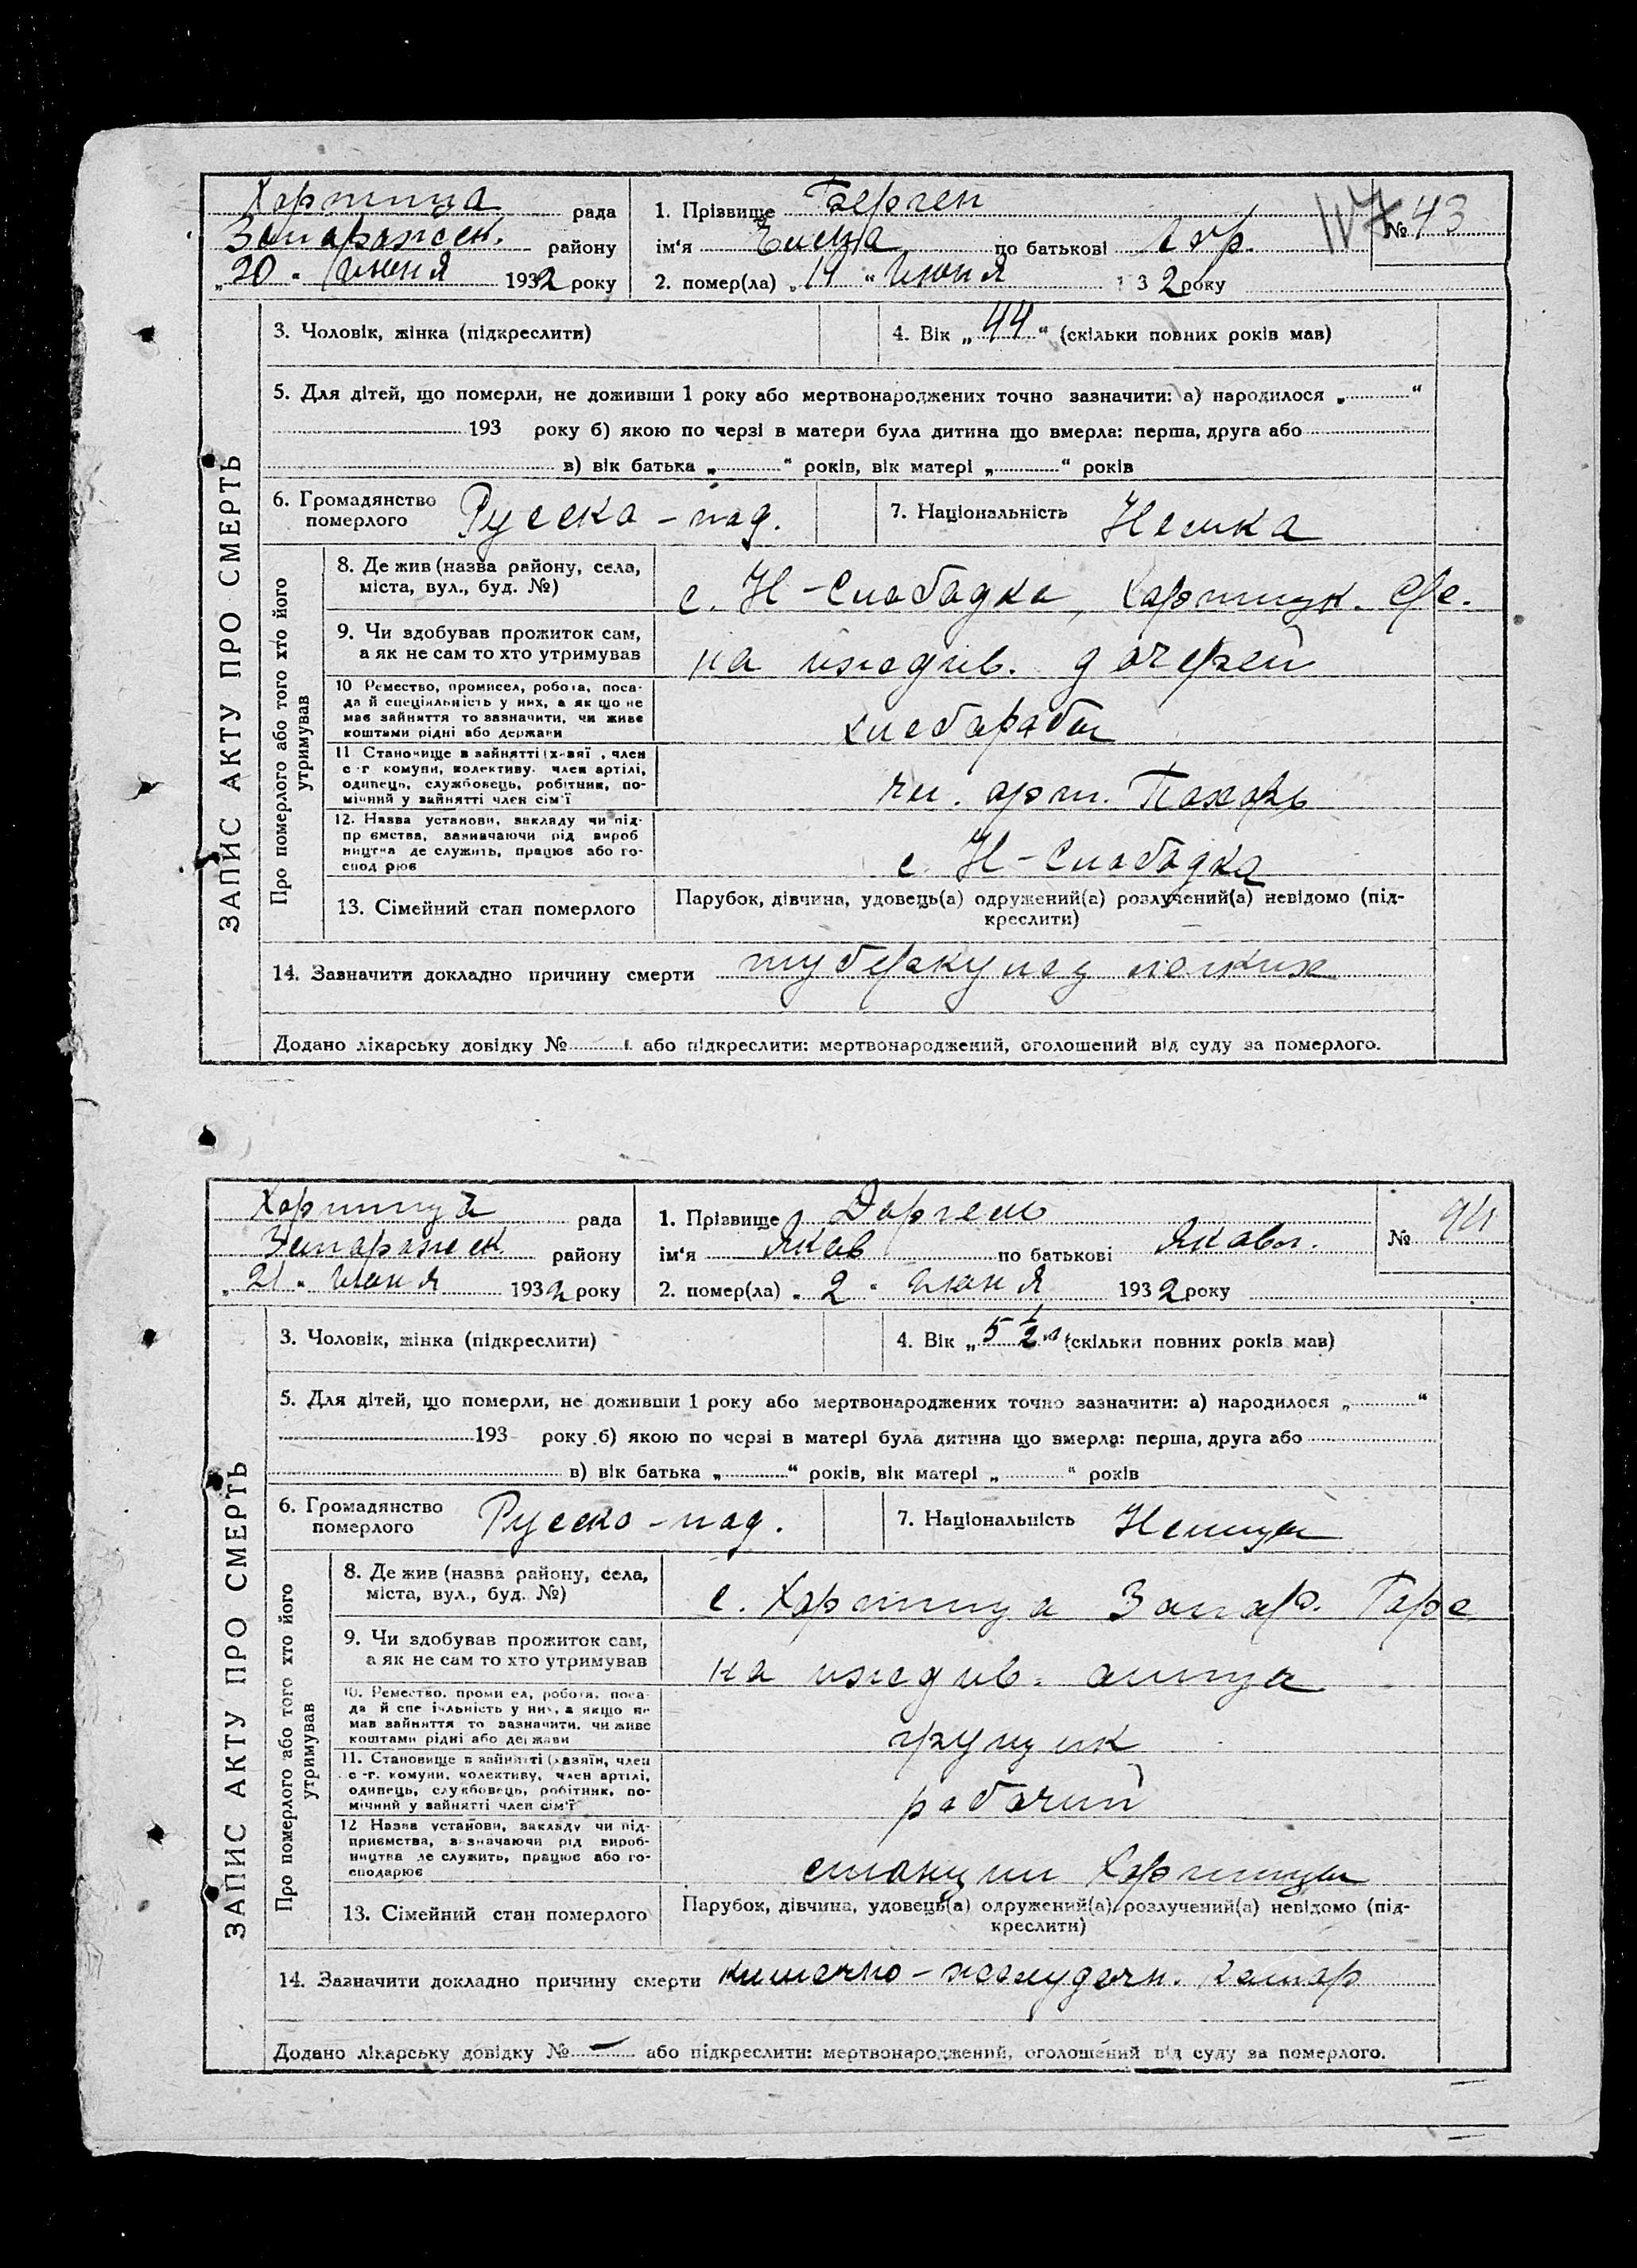 ЗАПИС АКТУ ПРО СМЕРТЬ
Хортица рада
Запорожск. району
„20" Июня 1932 року
1. Прізвище Берген
ім'я Елиза по батькові
№ 43
2. помер(ла) „19" Июня 1932 року
3. Чоловік, жінка (підкреслити)
4. Вік „44" (скільки повних років мав)
5. Для дітей, що померли, не доживши 1 року або мертвонароджених точно зазначити: а) народилося „ "
193 року б) якою по черзі в матери була дитина що вмерла: перша, друга або
в) вік батька „ " років, вік матері „ " років
6. Громадянство померлого Русско-под.
7. Національність Немка
Про померлого або того хто його утримував
8. Де жив (назва району, села,
міста, вул., буд. №)
с. Н-Слободка, Хортицк.
9. Чи здобував прожиток сам,
а як не сам то хто утримував
на иждив. дочерей
10 Ремество, промисел, робота, поса-
да й спеціяльність у них, а як що не
має зайняття то зазначити, чи живе
коштами рідні або держави
хлебороба
11 Становище в зайнятті (х-зяї , член
с-г комуни, колективу. член артілі,
одинець, службовець, робітник, по-
мічний у зайнятті член сім'ї
чл. арт. Пахарь
12. Назва установи, закладу чи під-
пр ємства, зазначаючи рід вироб
ництва де служить, працює або го-
спод рює
с. Н-Слободка
13. Сімейний стан померлого
Парубок, дівчина, удовець(а) одружений(а) розлучений(а) невідомо (під-
креслити)
14. Зазначити докладно причину смерти туберкулез легких
Додано лікарську довідку № або підкреслити: мертвонароджений, оголошений від суду за померлого.
ЗАПИС АКТУ ПРО СМЕРТЬ
Хортица рада
Запорожск району
„21" Июня 1932 року
1. Прізвище
ім'я Яков по батькові Яковл.
№ 94
2. помер(ла) „2" Июня 1932 року
3. Чоловік, жінка (підкреслити)
4. Вік „5 1/2" (скільки повних років мав)
5. Для дітей, що померли, не доживши 1 року або мертвонароджених точно зазначити: а) народилося „ "
193 року б) якою по черзі в матері була дитина що вмерла: перша, друга або
в) вік батька „ " років, вік матері „ " років
6. Громадянство померлого Русско-под.
7. Національність Немцы
Про померлого або того хто його утримував
8. Де жив (назва району, села,
міста, вул., буд. №)
с. Хортица Запор. Горс
9. Чи здобував прожиток сам,
а як не сам то хто утримував
на иждив. отца
10. Ремество. проми ел, робота. поса-
да й спе іяльність у них, а якщо не
мав зайняття то зазначити. чи живе
коштами рідні або держави
грузчик
11. Становище в зайнятті (хазяїн, член
с-г. комуни, колективу, член артілі,
одинець, службовець, робітник, по-
мічний у зайнятті член сім'ї
рабочий
12 Назва установи, закладу чи під-
приємства, зазначаючи рід вироб-
ництва де служить, працює або го-
сподарює
станции Хортицы
13. Сімейний стан померлого
Парубок, дівчина, удовець(а) одружений(а) розлучений(а) невідомо (під-
креслити)
14. Зазначити докладно причину смерти кишечно-желудочн. катар
Додано лікарську довідку № — або підкреслити: мертвонароджений, оголошений від суду за померлого.